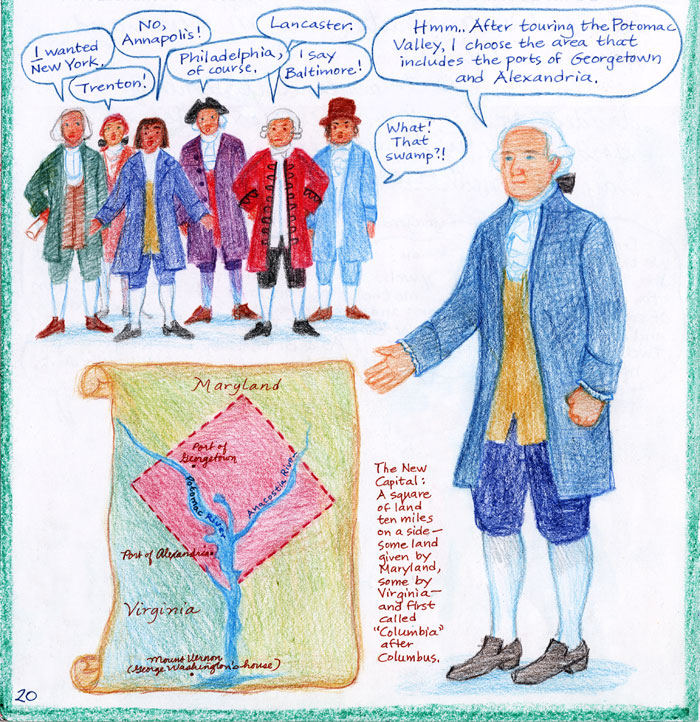 I wanted
New York.
Trenton!
No,
Annapolis!
Philadelphia,
of course.
Lancaster.
I say
Baltimore!
Hmm.. After touring the Potomac
Valley, I choose the area that
includes the ports of Georgetown
and Alexandria.
What!
That
swamp?!
Maryland
Port of
Georgetown
Potomac River
Anacostia River
Port of Alexandria
Virginia
Mount Vernon
(George Washington's house)
The New
Capital:
A square
of land
ten miles
on a side—
some land
given by
Maryland,
some by
Virginia—
and first
called
"Columbia"
after
Columbus.
20